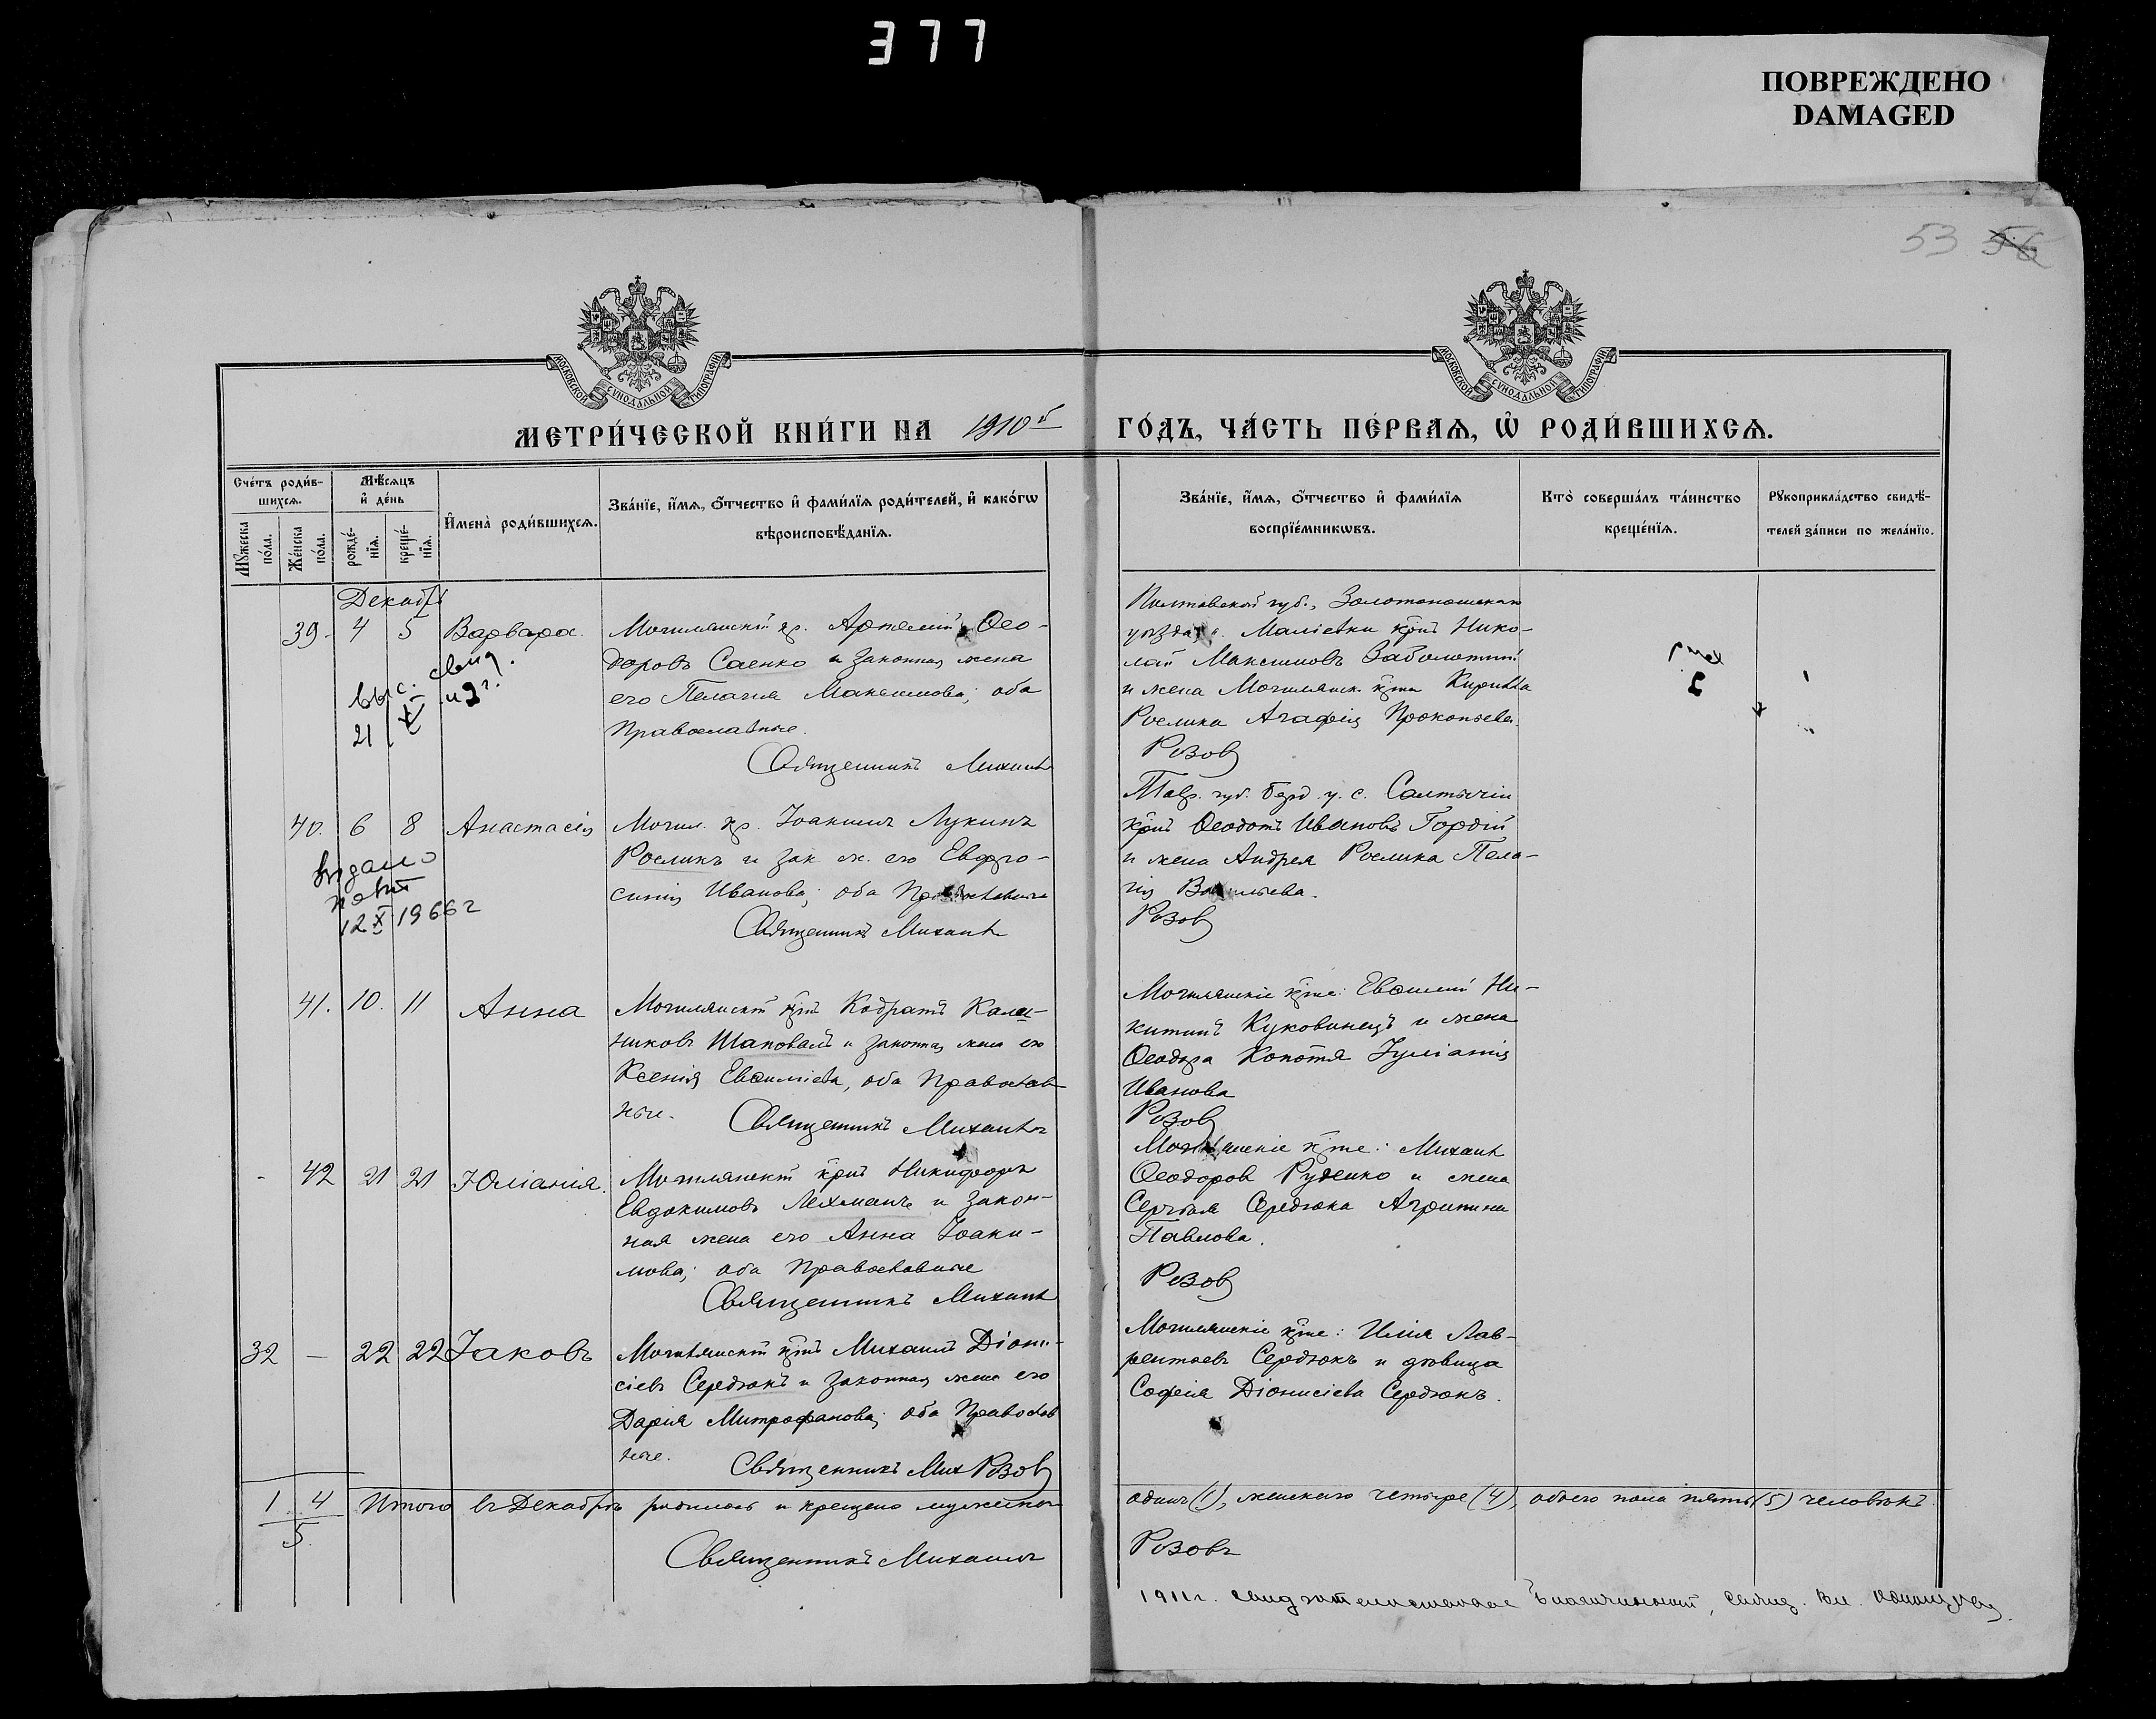 377
ПОВРЕЖДЕНО
DAMAGED
53 56
МОСКОВСКОЙ СѴНОДАЛЬНОЙ ТИПОГРАФІИ
МОСКОВСКОЙ СѴНОДАЛЬНОЙ ТИПОГРАФІИ
МЕТРИ́ЧЕСКОЙ КНИ́ГИ НА 1910й ГО́ДЪ, ЧА́СТЬ ПЕ́РВАЯ, Ѿ РОДИ́ВШИХСЯ.
Сче́тъ роди́в-
шихся.
Мꙋжеска по́ла.
Же́нска по́ла.
Мѣ́сяцъ
и де́нь
рожде́-
нїя.
креще́-
нїя.
Имена̀ роди́вшихся.
Зва́нїе, и́мя, о́тчество и фами́лїя роди́телей, и како́гѡ
вѣроисповѣ́данїя.
Зва́нїе, и́мя, о́тчество и фами́лїя
воспрїе́мникѡвъ.
Кто̀ соверша́лъ та́инство
креще́нїя.
Рꙋкоприкла́дство свидѣ́-
телей за́писи по жела́нїю.
Декабрь
39. 4 5 Варвара.
Могилянскій кр. Артемій Ѳео-
доровъ Саенко и законная жена
его Пелагия Максимова; оба
Православные.
Священникъ Михаилъ
выс. свид.
21
Полтавской губ., Золотоношскаго
уѣзда с. Маліевки кр̃нъ Нико-
лай Максимовъ Заболотний
и жена Могилянск. кр̃на Кирилла
Рослика Агафія Прокопьева.
Розовъ
40. 6 8 Анастасія
Могил. кр. Іоакимъ Лукинъ
Росликъ и зак. ж. его Евфро-
синія Иванова; оба Православные
Священникъ Михаилъ
выдано
повт
12 X 1966 г
Тавр. губ. Берд. у. с. Салтычіи
кр̃нъ Ѳеодотъ Ивановъ Гордій
и жена Андрея Рослика Пела-
гія Васильева.
Розовъ
41. 10. 11 Анна
Могилянскій кр̃нъ Кодратъ Калли-
никовъ Шаповалъ и законная жена его
Ксенія Евѳиміева, оба Православ-
ные. Священникъ Михаилъ
Могилянскіе кр̃не: Евѳимій Ни-
китинъ Куковинецъ и жена
Ѳеодора Копотя Іуліанія
Иванова
Розовъ
- 42 21 21 Юліанія.
Могилянскій кр̃нъ Никифоръ
Евдокимовъ Лехманъ и закон-
ная жена его Анна Іоаки-
мова; оба Православные
Священникъ Михаилъ
Могилянскіе кр̃не: Михаилъ
Ѳеодоровъ Руденко и жена
Сергѣя Середюка Агрипина
Павлова.
Розовъ
32 — 22 22 Іаковъ
Могилянскій кр̃нъ Михаилъ Діони-
сіевъ Середюкъ и законная жена его
Дарія Митрофанова; оба Православ
ные. Священникъ Мих Розовъ
Могилянскіе кр̃не: Илія Лав-
рентьевъ Середюкъ и дѣвица
Софія Діонисіева Середюкъ.
1 4 Итого въ Декабрѣ родилось и крещено мужскаго одинъ (1), женскаго четыре (4), обоего пола пять (5) человѣкъ.
5.
Священникъ Михаилъ Розовъ
1911 г. свидѣтельствовалъ Благочинный, Свящ.